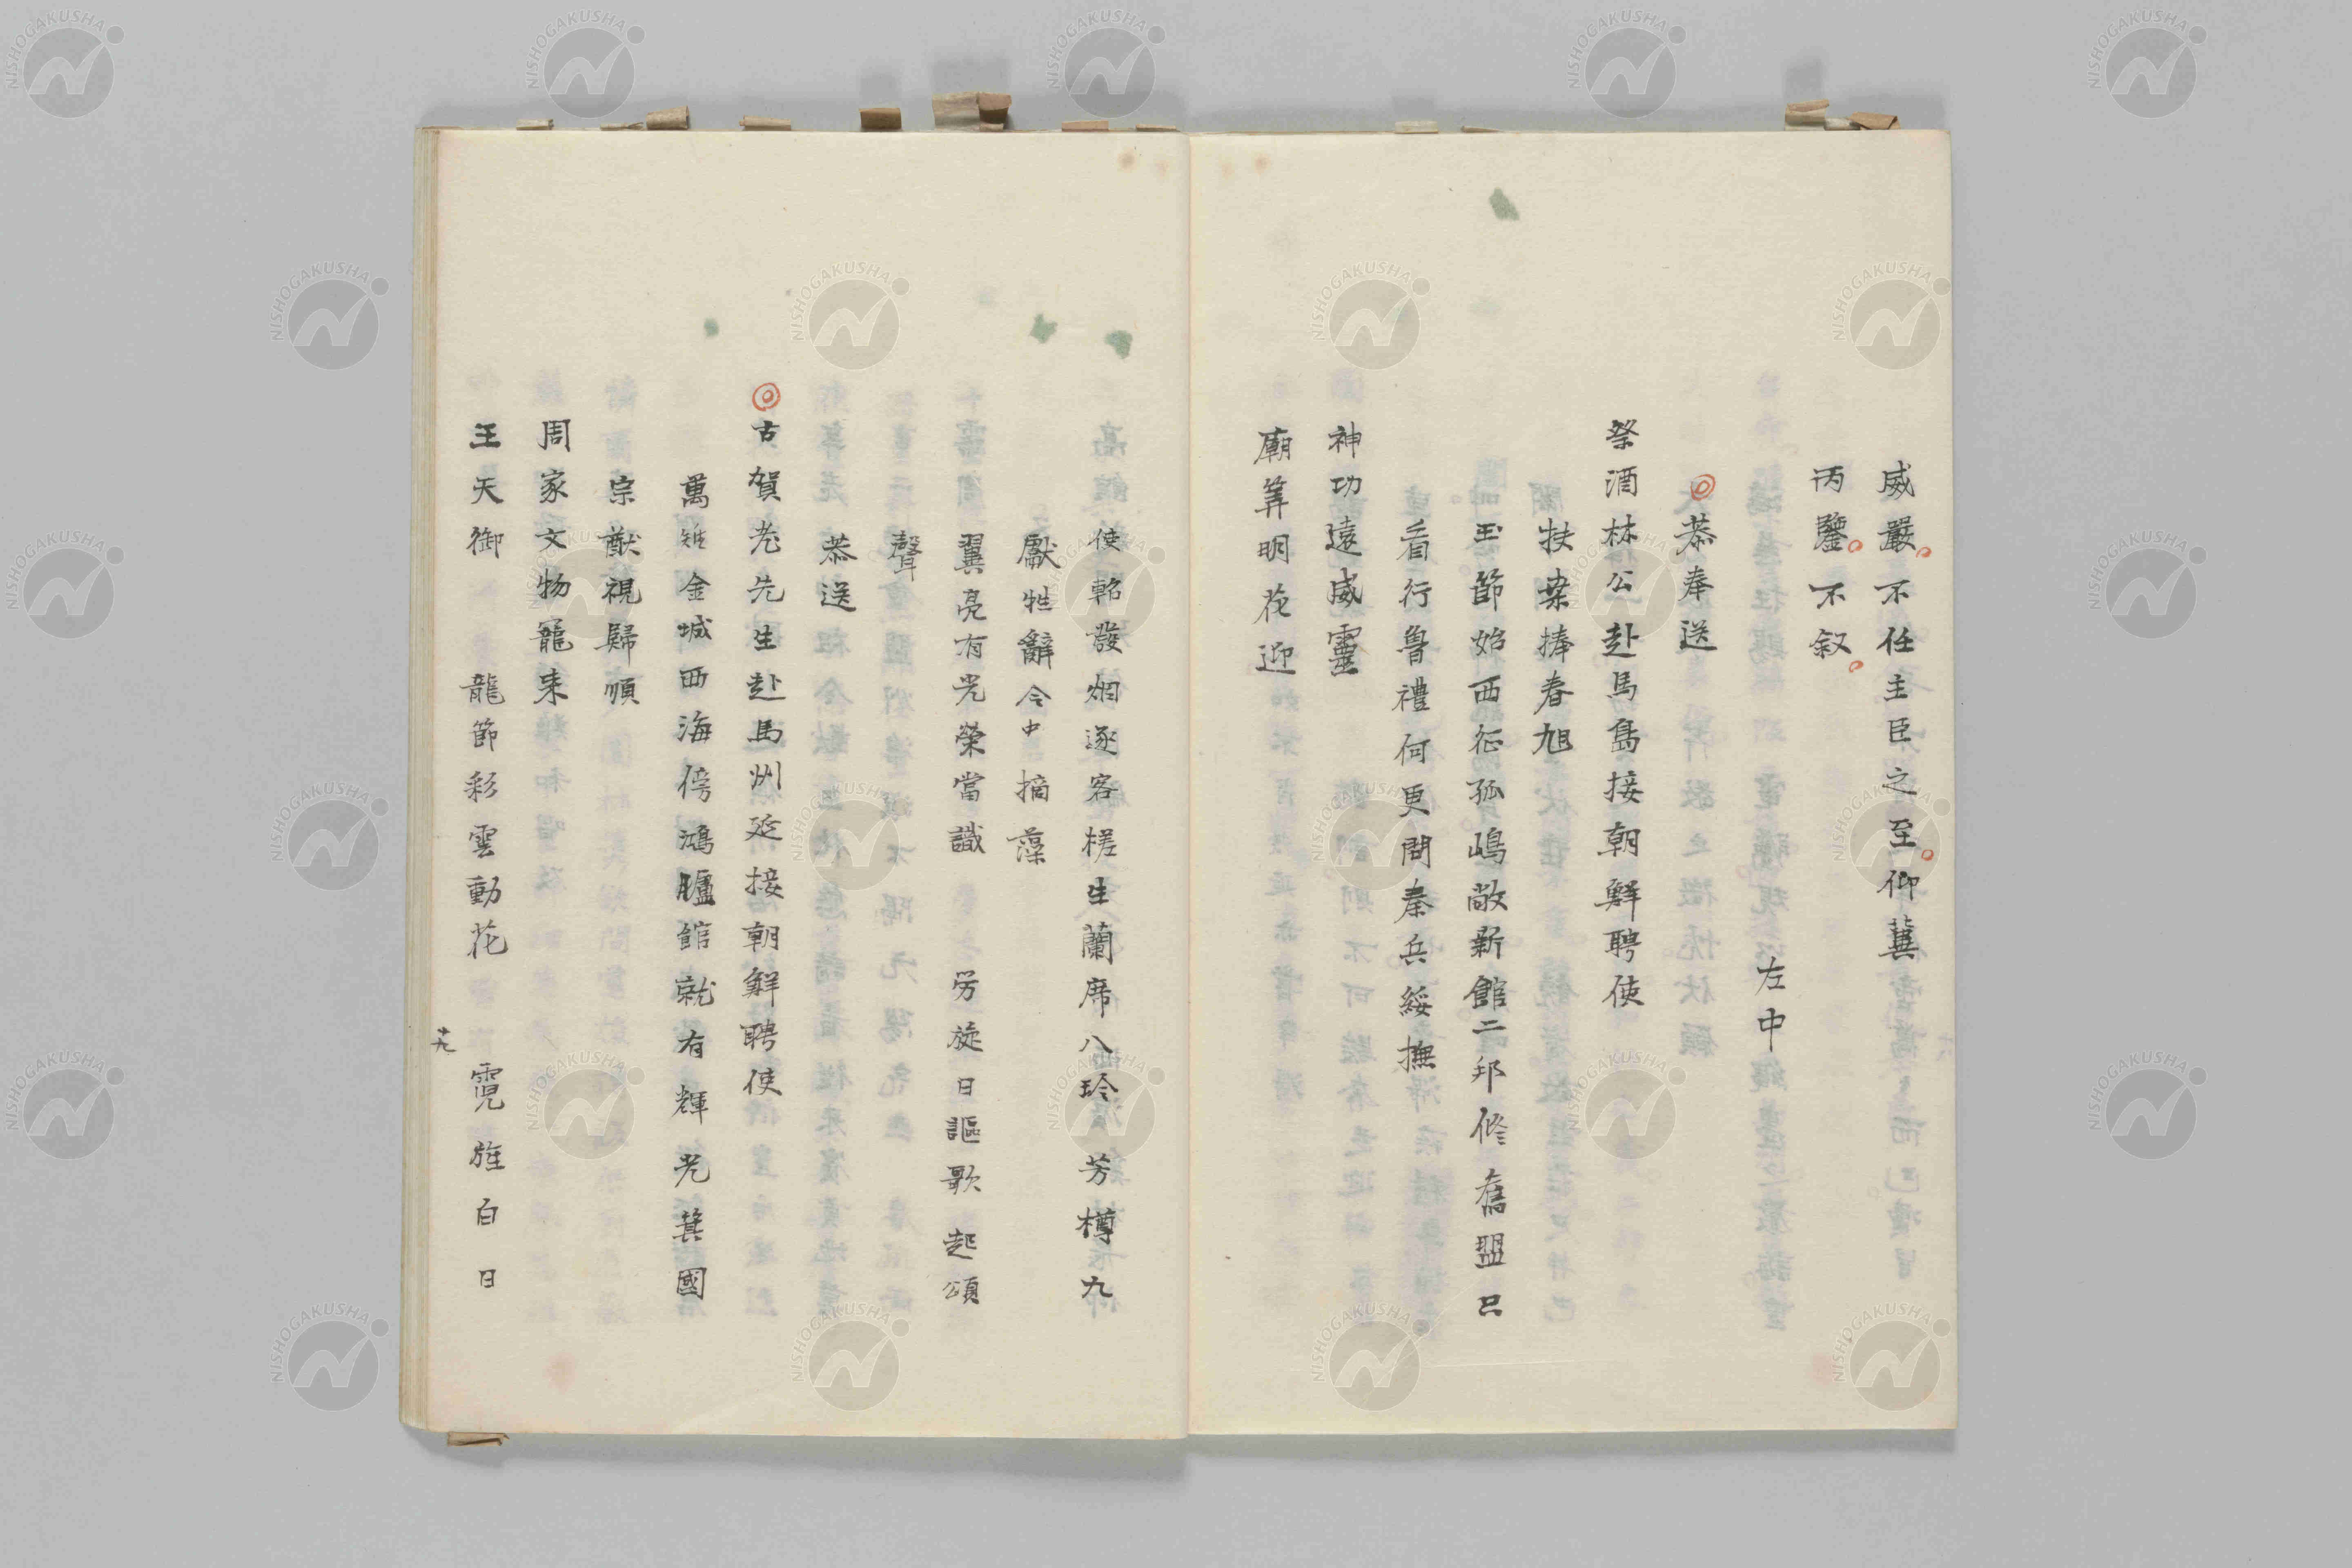 威嚴不任主臣之至仰冀
丙鑒不叙
左中
恭奉送
祭酒林公赴馬島接朝鮮聘使
扶桑捧春旭
玉節始西征孤嶋敞新館二邦修舊盟已
看行魯禮何更問秦兵綏撫
神功遠威靈
廟筭明花迎
使軺發烟逐客槎生蘭席八珍芳樽九
獻牲辭令中摛藻
翼亮有光榮當識
勞旋日謳歌起頌
聲
恭送
古賀老先生赴馬州延接朝鮮聘使
萬雉金城西海傍鴻臚館就有輝光箕國
宗猷視歸順
周家文物寵来
王天御
龍節彩雲動花
霓旌白日
十九
NISHOGAKUSHA